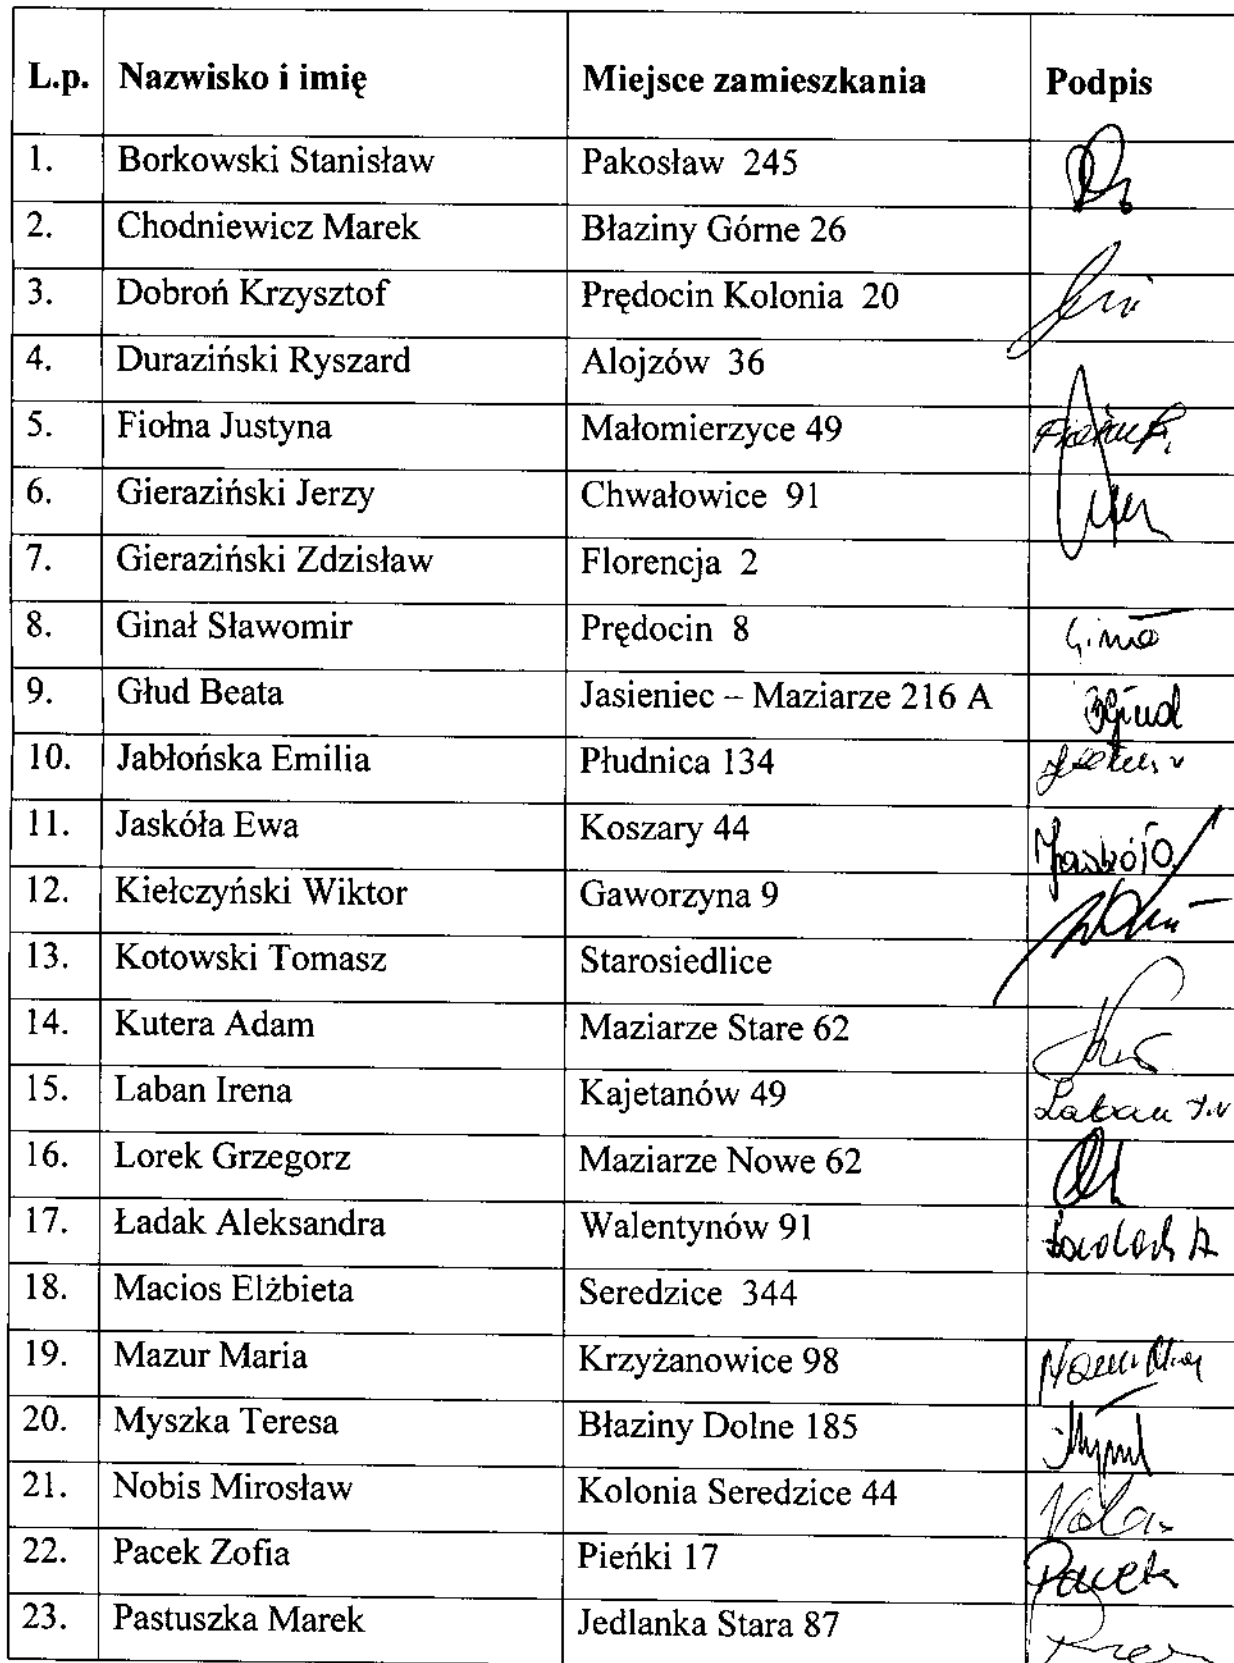 L.p. Nazwisko i imię Miejsce zamieszkania Podpis
1. Borkowski Stanisław Pakosław 245
2. Chodniewicz Marek Błaziny Górne 26
3. Dobroń Krzysztof Prędocin Kolonia 20
4. Duraziński Ryszard Alojzów 36
5. Fiołna Justyna Małomierzyce 49
6. Gieraziński Jerzy Chwałowice 91
7. Gieraziński Zdzisław Florencja 2
8. Ginał Sławomir Prędocin 8
9. Głud Beata Jasieniec – Maziarze 216 A
10. Jabłońska Emilia Płudnica 134
11. Jaskóła Ewa Koszary 44 Jaskóła
12. Kiełczyński Wiktor Gaworzyna 9
13. Kotowski Tomasz Starosiedlice
14. Kutera Adam Maziarze Stare 62
15. Laban Irena Kajetanów 49 Laban
16. Lorek Grzegorz Maziarze Nowe 62
17. Ładak Aleksandra Walentynów 91 Ładak A
18. Macios Elżbieta Seredzice 344
19. Mazur Maria Krzyżanowice 98
20. Myszka Teresa Błaziny Dolne 185
21. Nobis Mirosław Kolonia Seredzice 44
22. Pacek Zofia Pieńki 17 Pacek
23. Pastuszka Marek Jedlanka Stara 87